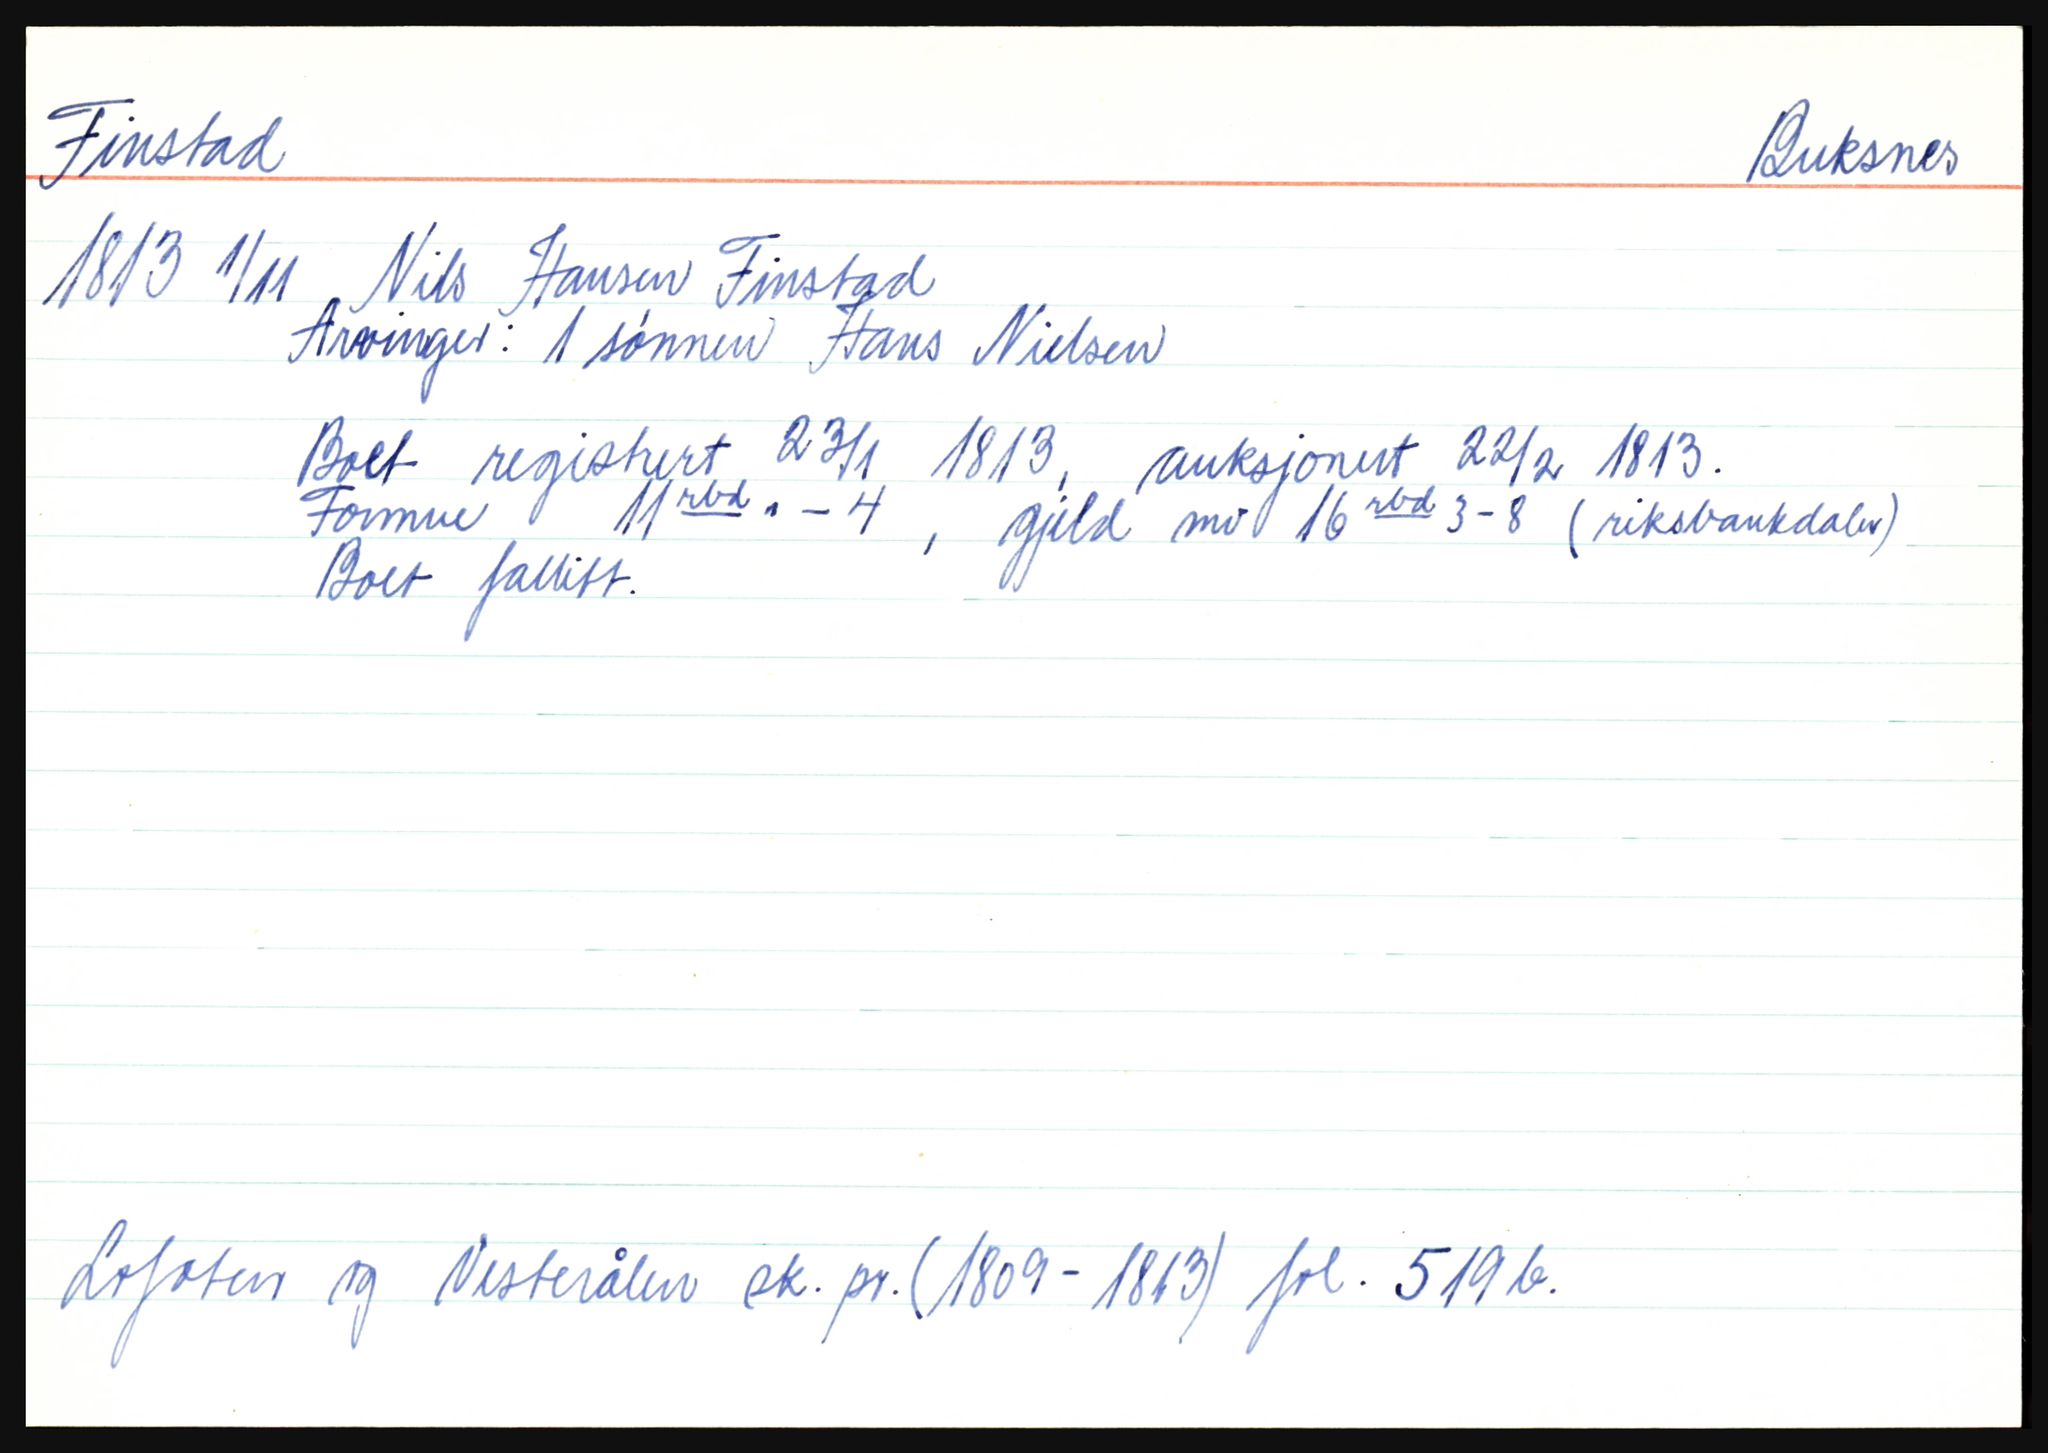 Finstad Buksnes
1813 1/11 Nils Hansen Finstad
Arvinger: 1 sønnen Hans Nielsen
Boet registrert 23/1 1813, auksjonert 22/2 1813.
Formue 11 rbd " - 4, gjeld mv 16 rbd 3-8 (riksbankdaler)
Boet fallitt.
Lofoten og Vesterålen sk. pr. (1809-1813) fol. 519 b.